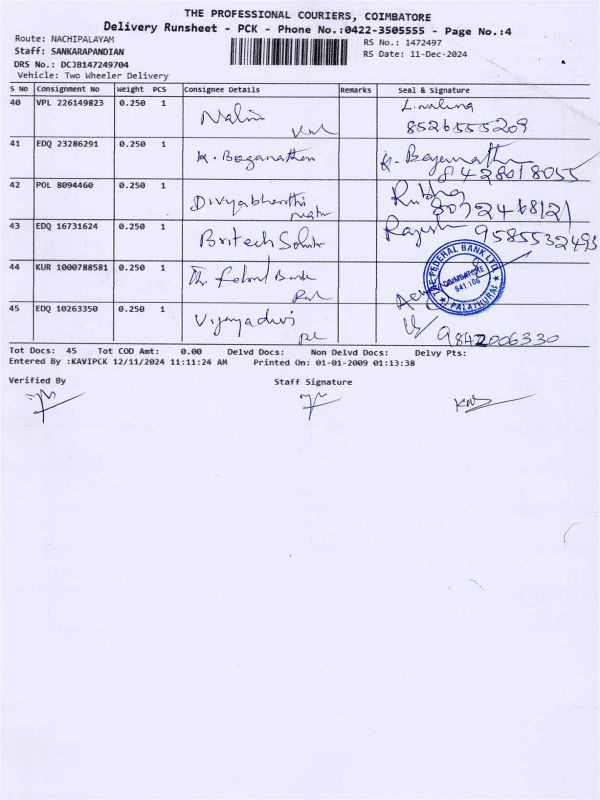 THE PROFESSIONAL COURIERS, COIMBATORE
Delivery Runsheet - PCK - Phone No.:0422-3505555 - Page No.:4
Route: NACHIPALAYAM
RS No.: 1472497
Staff: SANKARAPANDIAN
RS Date: 11-Dec-2024
DRS No.: DCJB147249704
Vehicle: Two Wheeler Delivery
S No Consignment No Weight PCS Consignee Details Remarks Seal & Signature
40 VPL 226149823 0.250 1 Nalin L. nalina
8526555209
41 EDQ 23286291 0.250 1 K. Boganathan
8428018055
42 POL 8094460 0.250 1 Divyabharathi
8072468121
43 EDQ 16731624 0.250 1 Britech Rajesh 9585532493
44 KUR 1000788581 0.250 1 The Federal Bank THE FEDERAL BANK LTD.
COIMBATORE
641 106
PALATHURAI
45 EDQ 10263350 0.250 1 Vijayadevi
9842006330
Tot Docs: 45 Tot COD Amt: 0.00 Delvd Docs: Non Delvd Docs: Delvy Pts:
Entered By :KAVIPCK 12/11/2024 11:11:24 AM Printed On: 01-01-2009 01:13:38
Verified By Staff Signature